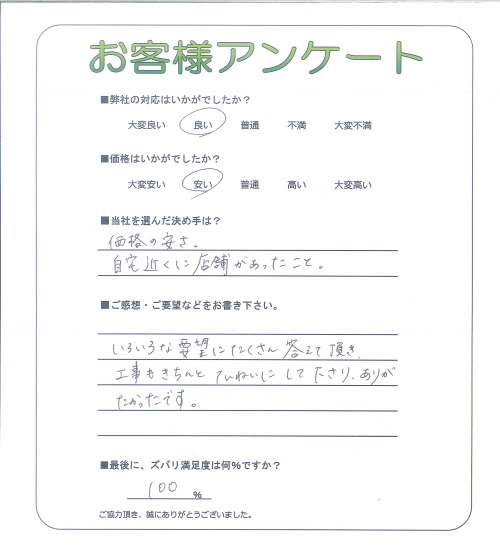 お客様アンケート
■弊社の対応はいかがでしたか？
大変良い 良い 普通 不満 大変不満
■価格はいかがでしたか？
大変安い 安い 普通 高い 大変高い
■当社を選んだ決め手は？
価格の安さ。
自宅近くに店舗があったこと。
■ご感想・ご要望などをお書き下さい。
いろいろな要望にたくさん答えて頂き、
工事もきちんとていねいにして下さり、ありが
たかったです。
■最後に、ズバリ満足度は何%ですか？
100 %
ご協力頂き、誠にありがとうございました。